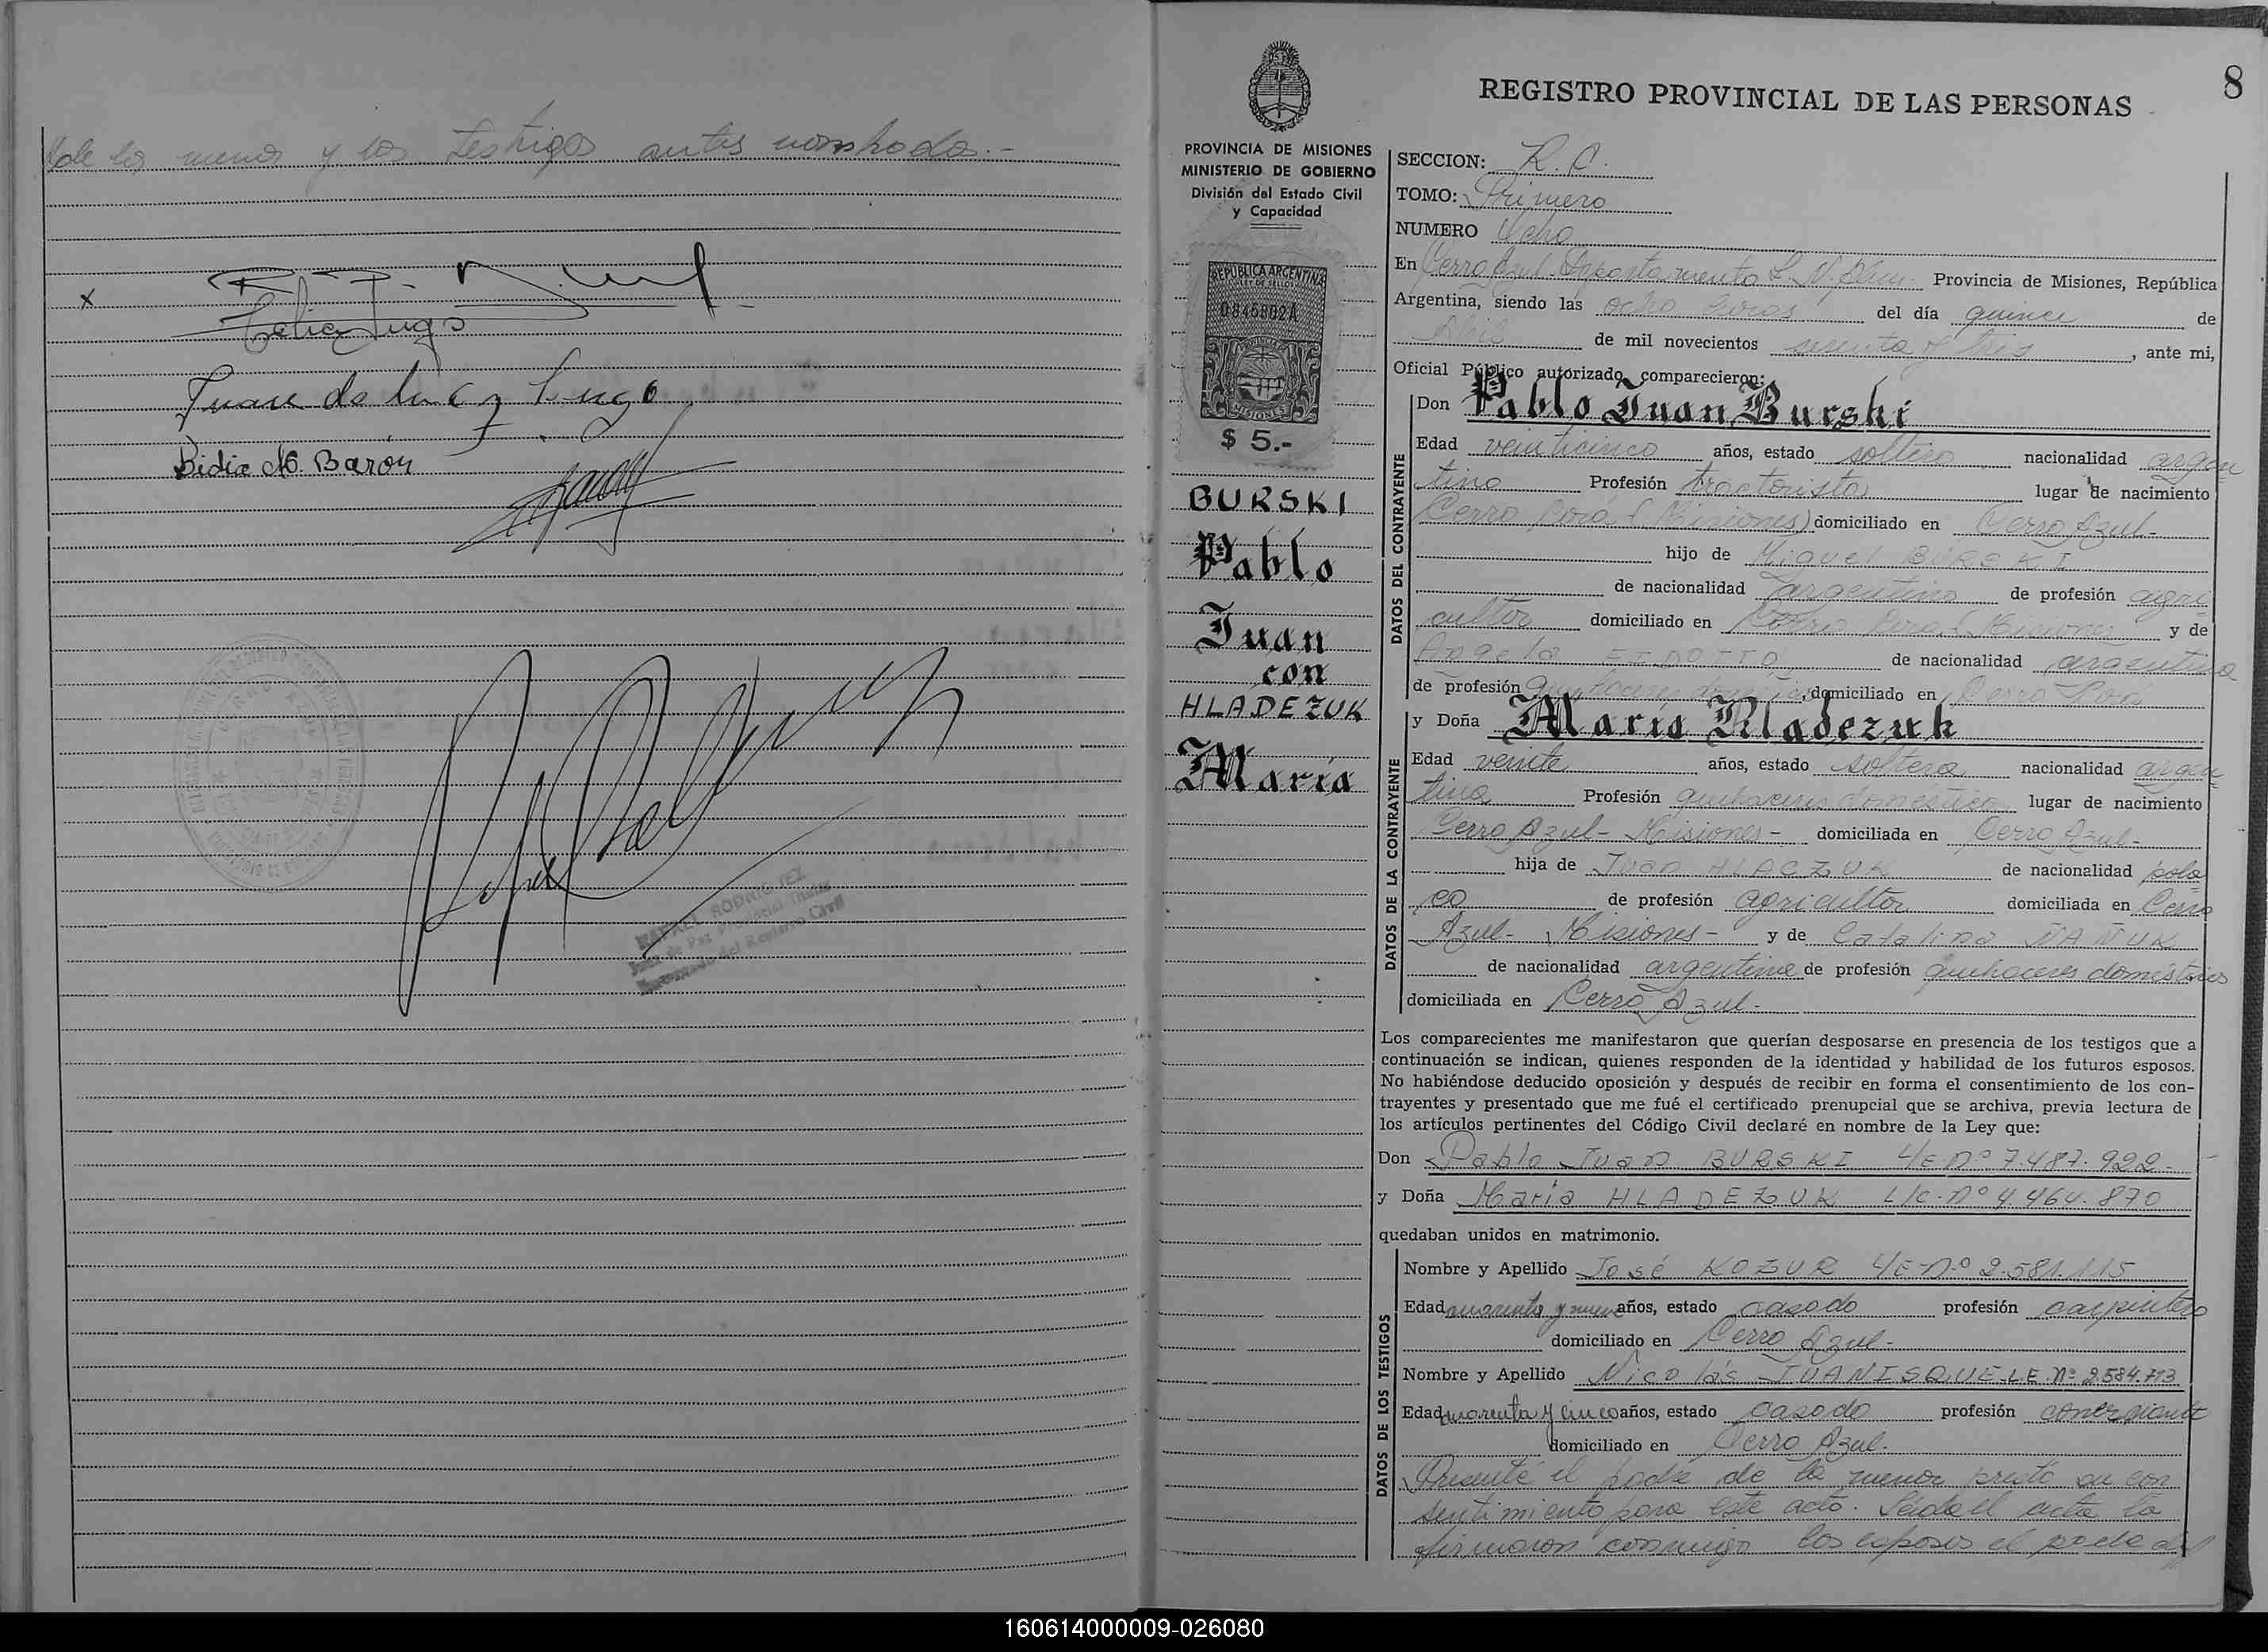 de la menor y los testigos antes nombrado.-
x
Celia Lugo
Juan de la Cruz Lugo
Lidia N. Barón
RAFAEL RODRIGUEZ
Juez de Paz Provincial Titular
Encargado del Registro Civil
8
REGISTRO PROVINCIAL DE LAS PERSONAS
PROVINCIA DE MISIONES
MINISTERIO DE GOBIERNO
División del Estado Civil
y Capacidad
REPUBLICA ARGENTINA
LEY DE SELLOS
0845802A
PROVINCIA
MISIONES
$ 5.-
BURSKI
Pablo
Juan
con
HLADEZUK
María
SECCION: R. C.
TOMO: Primero
NUMERO Ocho
En Cerro Azul - Departamento L. N. Alem Provincia de Misiones, República
Argentina, siendo las ocho horas del día quince de
Abril de mil novecientos sesenta y tres, ante mi,
Oficial Público autorizado, comparecieron:
DATOS DEL CONTRAYENTE
Don Pablo Juan Burski
Edad veinticinco años, estado soltero nacionalidad argen
tino Profesión tractorista lugar de nacimiento
Cerro Corá (Misiones) domiciliado en Cerro Azul-
hijo de Miguel BURSKI
de nacionalidad argentino de profesión agri
cultor domiciliado en Cerro Corá (Misiones y de
Angela de nacionalidad argentina
de profesión domiciliado en Cerro Corá
DATOS DE LA CONTRAYENTE
y Doña María Hladezuk
Edad veinte años, estado soltera nacionalidad argen
tina Profesión quehaceres domésticos lugar de nacimiento
Cerro Azul - Misiones - domiciliada en Cerro Azul-
hija de Juan HLACZUK de nacionalidad pola
co de profesión agricultor domiciliada en Cerro
Azul - Misiones - y de Catalina ÑAÑUK
de nacionalidad argentina de profesión quehaceres domésticos
domiciliada en Cerro Azul -
Los comparecientes me manifestaron que querían desposarse en presencia de los testigos que a
continuación se indican, quienes responden de la identidad y habilidad de los futuros esposos.
No habiéndose deducido oposición y después de recibir en forma el consentimiento de los con-
trayentes y presentado que me fué el certificado prenupcial que se archiva, previa lectura de
los artículos pertinentes del Código Civil declaré en nombre de la Ley que:
Don Pablo Juan BURSKI L/E nº 7.487.922-
y Doña María HLADEZUK L/C. nº 4.464.870
quedaban unidos en matrimonio.
DATOS DE LOS TESTIGOS
Nombre y Apellido José KOZUR L/E nº 2.581.115
Edad cuarenta y nueve años, estado casado profesión carpintero
domiciliado en Cerro Azul-
Nombre y Apellido Nicolás IUANISQUE L.E. Nº 2.584.713
Edad cuarenta y cinco años, estado casado profesión comerciante
domiciliado en Cerro Azul.
Presente el padre de la menor prestó su con
sentimiento para este acto. Leida el acta la
firmaron conmigo los esposos el padre
160614000009-026080